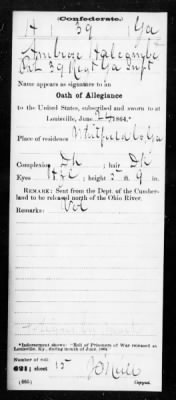 Confederate.
H | 39 | Ga
Ambrose Halcombe
Pvt 39 Regt Ga Inft
Name appears as signature to an
Oath of Allegiance
to the United States, subscribed and sworn to at
Louisville, June 1864.*
Place of residence Whitfield Co Ga
Complexion Dk ; hair Dk
Eyes ; height 5 ft. 9 in.
REMARK: Sent from the Dept. of the Cumberland
to be released north of the Ohio River.
Remarks: Vol
*Indorsement shows: "Roll of Prisoners of War released at
Louisville, Ky., during month of June 1864.
Number of roll:
691; sheet 15
Copyist.